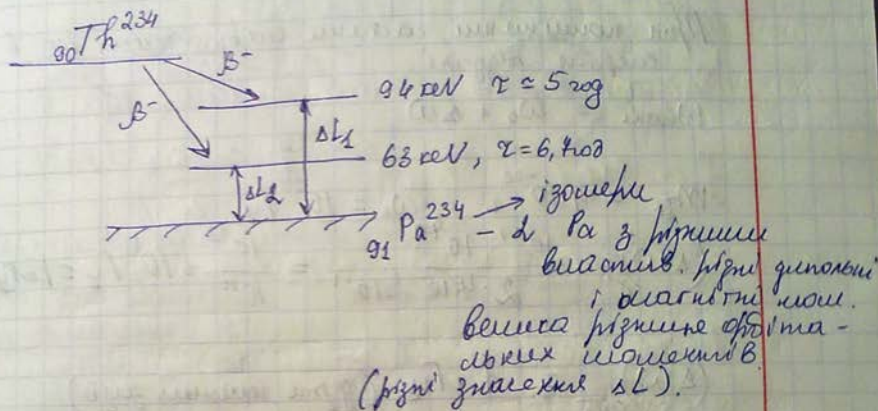 ₉₀Th²³⁴
β⁻
β⁻
94 keV τ ≃ 5 год
ΔL₁
63 keV, τ = 6,7 год
ΔL₂
₉₁Pa²³⁴ → ізомери
- 2 Pa з різними
властив. різні дипольні
і магнітні мом.
велика різниця орбіта-
льних моментів
(різні значення ΔL).